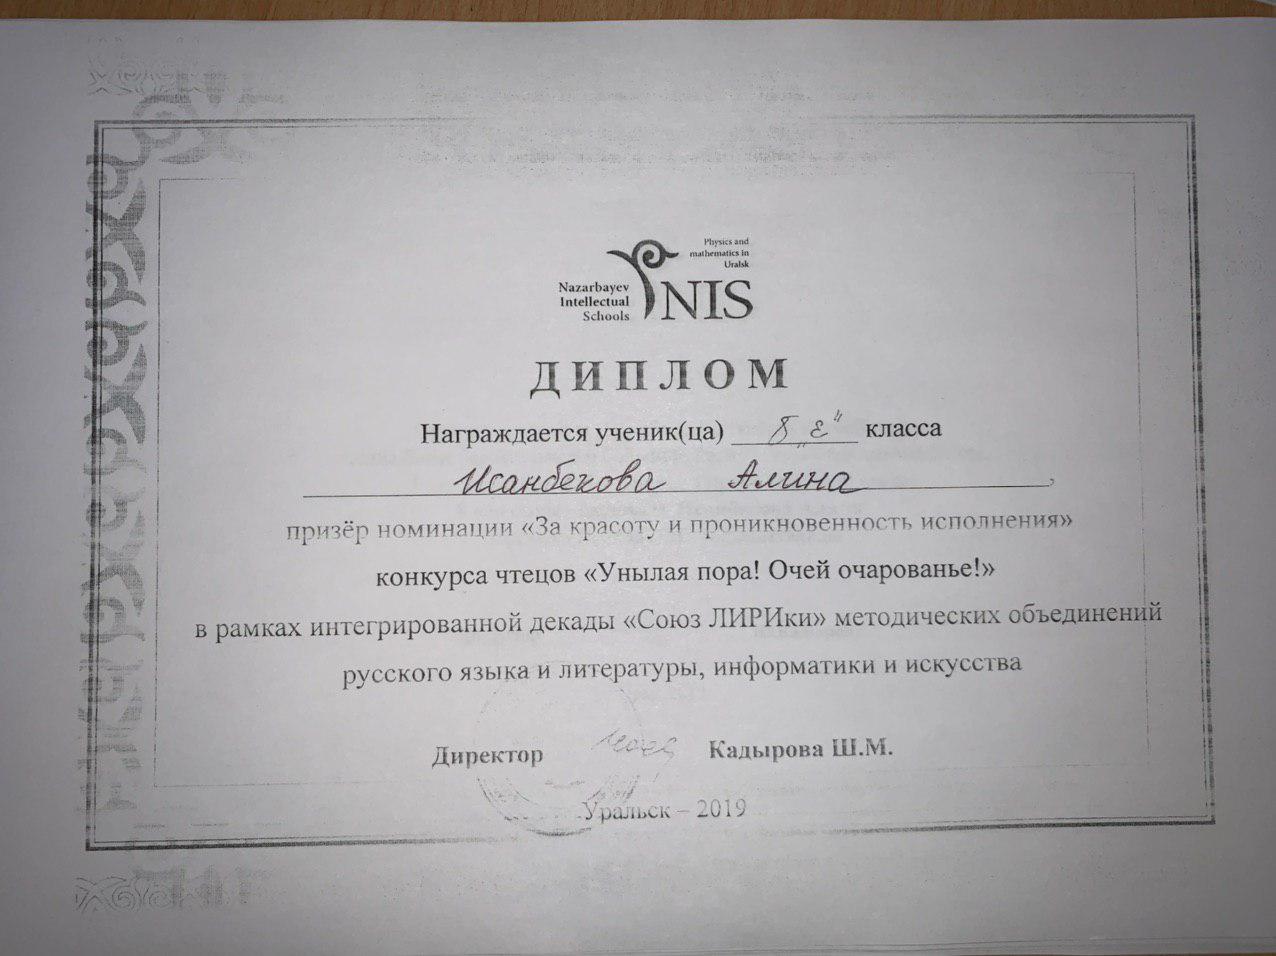 Physics and
mathematics in
Uralsk
Nazarbayev
Intellectual
Schools
NIS
ДИПЛОМ
Награждается ученик(ца) 8 „Е“ класса
Исанбекова Алина,
призёр номинации «За красоту и проникновенность исполнения»
конкурса чтецов «Унылая пора! Очей очарованье!»
в рамках интегрированной декады «Союз ЛИРИки» методических объединений
русского языка и литературы, информатики и искусства
Директор Кадырова Ш.М.
Уральск – 2019